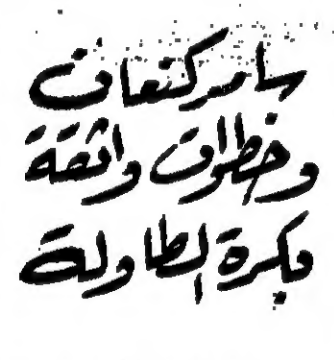 سامر كنعان
وخطوات واثقة
بكرة الطاولة